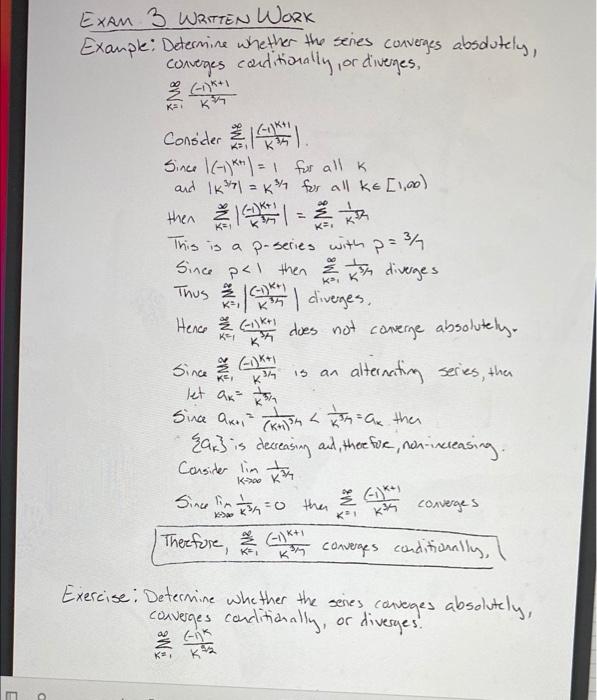 EXAM 3 WRITTEN WORK
Example: Determine whether the series converges absolutely,
converges conditionally, or diverges.
∞∑k=1 (-1)^(k+1) / k^(3/7)
Consider ∞∑k=1 |(-1)^(k+1) / k^(3/7)|.
Since |(-1)^(k+1)| = 1 for all k
and |k^(3/7)| = k^(3/7) for all k∈[1,∞)
then ∞∑k=1 |(-1)^(k+1) / k^(3/7)| = ∞∑k=1 1 / k^(3/7)
This is a p-series with p = 3/7
Since p<1 then ∞∑k=1 1 / k^(3/7) diverges
Thus ∞∑k=1 |(-1)^(k+1) / k^(3/7)| diverges.
Hence ∞∑k=1 (-1)^(k+1) / k^(3/7) does not converge absolutely.
Since ∞∑k=1 (-1)^(k+1) / k^(3/7) is an alternating series, then
let a_k = 1 / k^(3/7)
Since a_(k+1) = 1 / (k+1)^(3/7) < 1 / k^(3/7) = a_k then
{a_k} is decreasing and, therefore, non-increasing.
Consider lim k→∞ 1 / k^(3/7)
Since lim k→∞ 1 / k^(3/7) = 0 then ∞∑k=1 (-1)^(k+1) / k^(3/7) converges
Therefore, ∞∑k=1 (-1)^(k+1) / k^(3/7) converges conditionally.
Exercise: Determine whether the series converges absolutely,
converges conditionally, or diverges.
∞∑k=1 (-1)^k / k^(3/2)